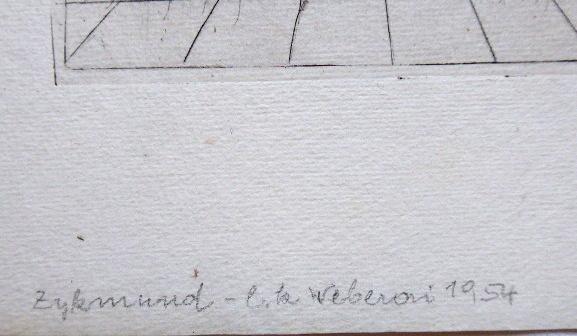 Zykmund - l. k Weberovi 1954